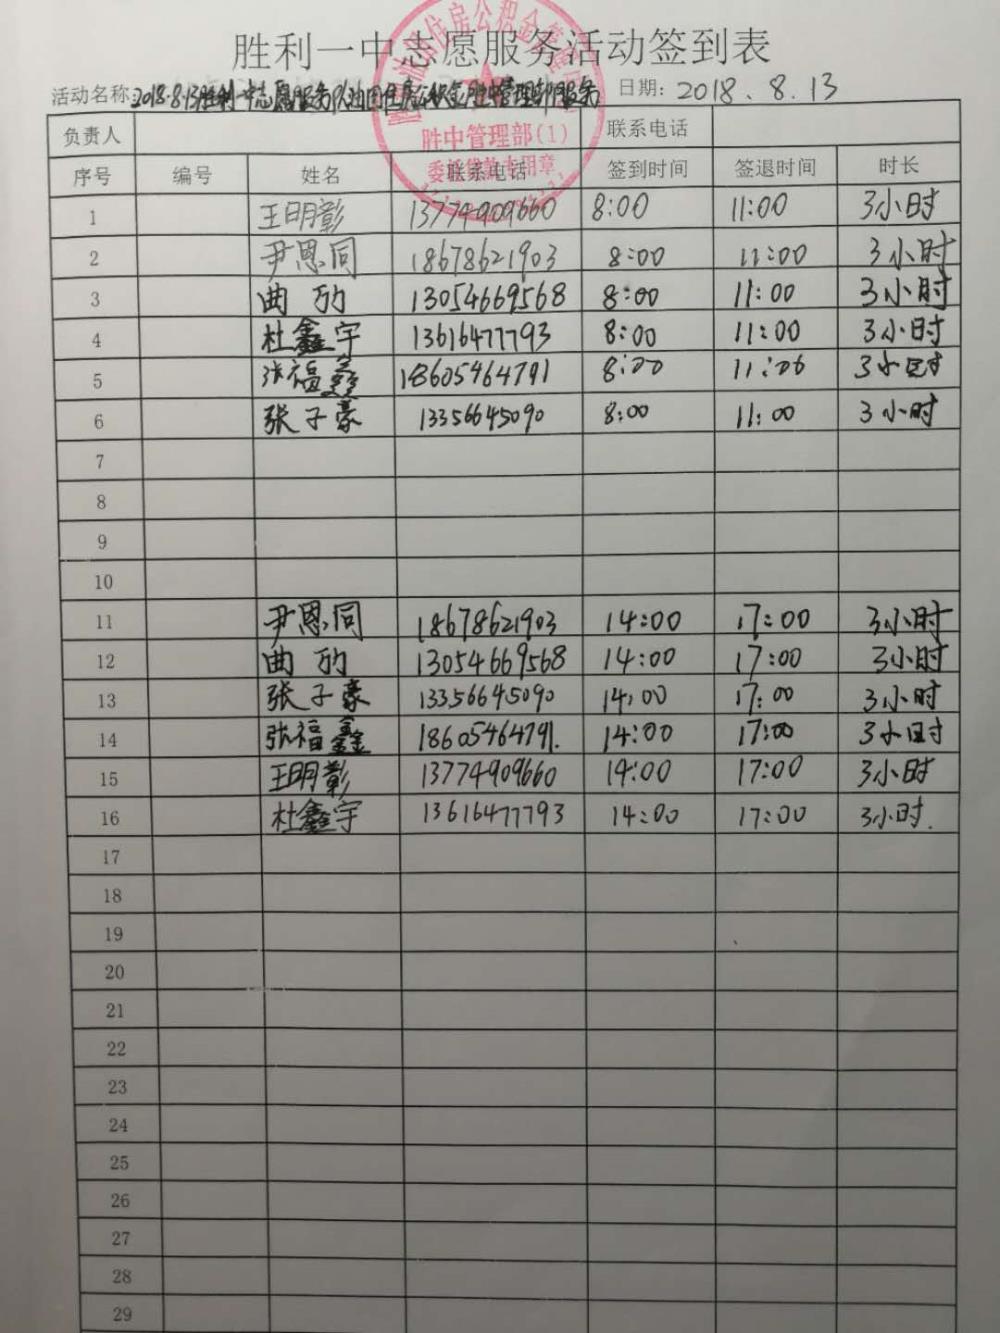 胜利一中志愿服务活动签到表
活动名称:2018.8.13胜利一中志愿服务队油田住房公积金胜中管理部服务 日期: 2018.8.13
胜中管理部(1)
委托贷款专用章
负责人 联系电话
序号 编号 姓名 联系电话 签到时间 签退时间 时长
1 王明彰 13774909660 8:00 11:00 3小时
2 尹恩同 18678621903 8:00 11:00 3小时
3 曲 13054669568 8:00 11:00 3小时
4 杜鑫宇 13616477793 8:00 11:00 3小时
5 张福鑫 18605464791 8:00 11:00 3小时
6 张子豪 13356645090 8:00 11:00 3小时
7
8
9
10
11 尹恩同 18678621903 14:00 17:00 3小时
12 曲 13054669568 14:00 17:00 3小时
13 张子豪 13356645090 14:00 17:00 3小时
14 张福鑫 18605464791. 14:00 17:00 3小时
15 王明彰 13774909660 14:00 17:00 3小时
16 杜鑫宇 13616477793 14:00 17:00 3小时.
17
18
19
20
21
22
23
24
25
26
27
28
29